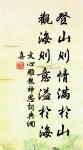 登山則情滿於山
觀海則意溢於海
文心雕龍神思詞典網